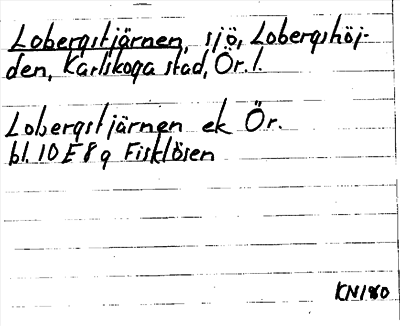 Lobergstjärnen, sjö, Lobergshöj-
den, Karlskoga stad, Ör. l.
Lobergstjärnen ek Ör.
bl. 10 E 8 g Fisklösen
KN180